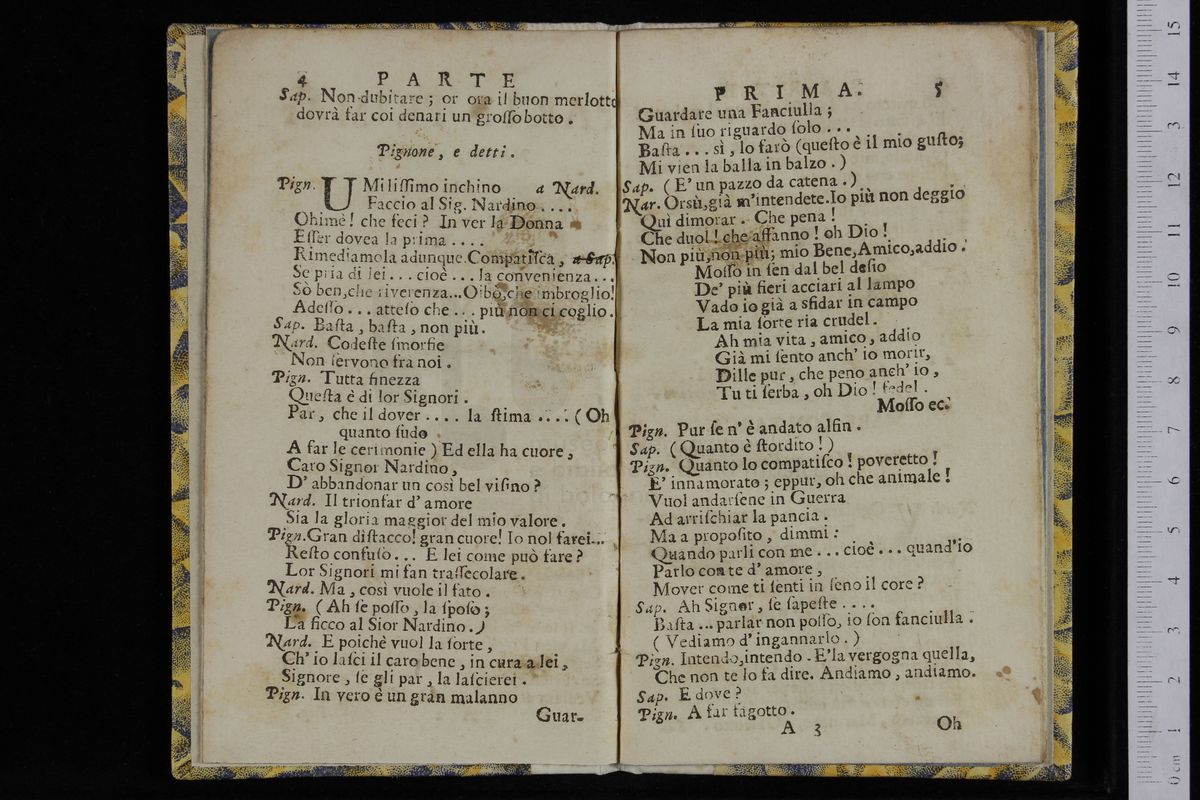 4 PARTE
Sap. Non dubitare ; or ora il buon merlotto
dovrà far coi denari un groſſo botto .
Pignone , e detti .
Pign. UMiliſſimo inchino a Nard.
Faccio al Sig. Nardino ....
Ohimè ! che feci ? In ver la Donna
Eſſer dovea la prima ....
Rimediamola adunque. Compatiſca , a Sap.
Se pria di lei ... cioè ... la convenienza ...
Sò ben, che riverenza... Oibò, che imbroglio!
Adeſſo ... atteſo che ... più non ci coglio .
Sap. Baſta , baſta , non più .
Nard. Codeſte ſmorfie
Non ſervono fra noi .
Pign. Tutta finezza
Queſta è di lor Signori .
Par , che il dover .... la ſtima .... ( Oh
quanto ſudo
A far le cerimonie ) Ed ella ha cuore ,
Caro Signor Nardino ,
D' abbandonar un così bel viſino ?
Nard. Il trionfar d' amore
Sia la gloria maggior del mio valore .
Pign. Gran diſtacco! gran cuore! Io nol farei...
Reſto confuſo ... E lei come può fare ?
Lor Signori mi fan traſſecolare .
Nard. Ma , così vuole il fato .
Pign. ( Ah ſe poſſo , la ſpoſo ;
La ficco al Sior Nardino . )
Nard. E poichè vuol la ſorte ,
Ch' io laſci il caro bene , in cura a lei ,
Signore , ſe gli par , la laſcierei .
Pign. In vero è un gran malanno
Guar-
PRIMA. 5
Guardare una Fanciulla ;
Ma in ſuo riguardo ſolo ...
Baſta ... sì , lo farò (queſto è il mio guſto;
Mi vien la balla in balzo . )
Sap. ( E' un pazzo da catena . )
Nar. Orsù, già m'intendete. Io più non deggio
Quì dimorar . Che pena !
Che duol ! che affanno ! oh Dio !
Non più, non più; mio Bene, Amico, addio .
Moſſo in ſen dal bel deſio
De' più fieri acciari al lampo
Vado io già a sfidar in campo
La mia ſorte ria crudel .
Ah mia vita , amico , addio
Già mi ſento anch' io morir,
Dille pur , che peno anch' io ,
Tu ti ſerba , oh Dio ! fedel .
Moſſo ec.
Pign. Pur ſe n' è andato alfin .
Sap. ( Quanto è ſtordito ! )
Pign. Quanto lo compatiſco ! poveretto !
E' innamorato ; eppur, oh che animale !
Vuol andarſene in Guerra
Ad arriſchiar la pancia .
Ma a propoſito , dimmi :
Quando parli con me ... cioè ... quand'io
Parlo con te d' amore ,
Mover come ti ſenti in ſeno il core ?
Sap. Ah Signor , ſe ſapeſte ....
Baſta ... parlar non poſſo, io ſon fanciulla .
( Vediamo d' ingannarlo . )
Pign. Intendo, intendo . E' la vergogna quella,
Che non te lo fa dire. Andiamo , andiamo.
Sap. E dove ?
Pign. A far fagotto .
A 3 Oh
0 cm 1 2 3 4 5 6 7 8 9 10 11 12 13 14 15